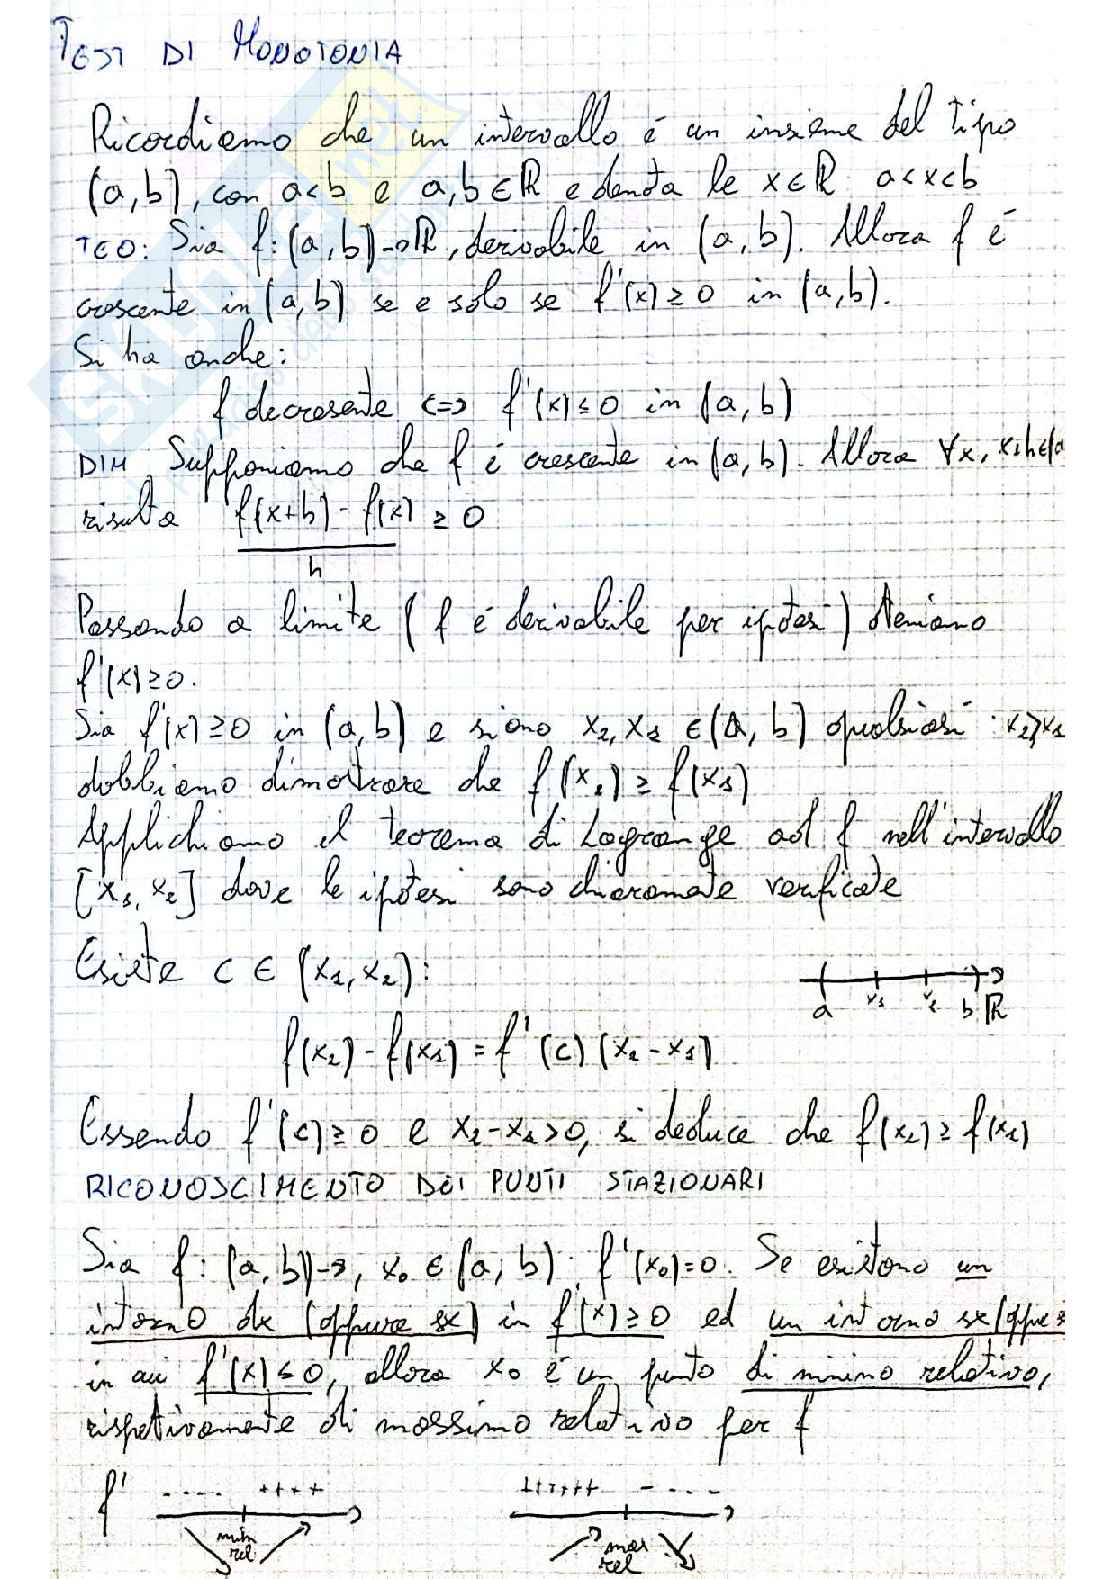 TEST DI MONOTONIA
Ricordiamo che un intervallo é un insieme del tipo
(a,b), con a<b e a,b∈ℝ e denota le x∈ℝ a<x<b
TEO: Sia f:(a,b)→ℝ, derivabile in (a,b). Allora f é
crescente in (a,b) se e solo se f'(x)≥0 in (a,b).
Si ha anche:
f decrescente <=> f'(x)≤0 in (a,b)
DIM Supponiamo che f é crescente in (a,b). Allora ∀x, x+h∈(a
risulta f(x+h)-f(x) ≥0
h
Passando a limite (f é derivabile per ipotesi) otteniamo
f'(x)≥0.
Sia f'(x)≥0 in (a,b) e siano x₂,x₁ ∈(a,b) qualsiasi: x₂>x₁
dobbiamo dimostrare che f(x₂)≥f(x₁)
Applichiamo il teorema di Lagrange ad f nell'intervallo
[x₁,x₂] dove le ipotesi sono chiaramente verificate
Esiste c∈(x₁,x₂):
a x₁ x₂ b ℝ
f(x₂)-f(x₁)=f'(c)(x₂-x₁)
Essendo f'(c)≥0 e x₂-x₁>0, si deduce che f(x₂)≥f(x₁)
RICONOSCIMENTO DEI PUNTI STAZIONARI
Sia f:(a,b)→, x₀∈(a,b): f'(x₀)=0. Se esistono un
intorno dx (oppure sx) in f'(x)≥0 ed un intorno sx (oppure
in cui f'(x)≤0, allora x₀ é un punto di minimo relativo,
rispetivamente di massimo relativo per f
f' ---- ++++ +++++++ ----
min rel max rel